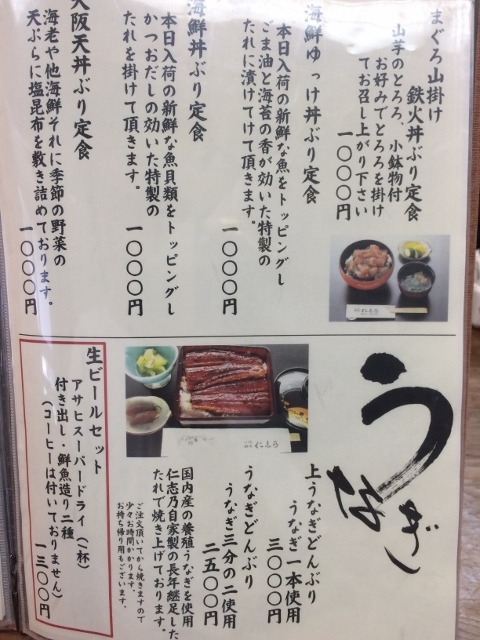 まぐろ山掛け
鉄火丼ぶり定食
山芋のとろろ、小鉢物付
お好みでとろろを掛け
てお召し上がり下さい
一〇〇〇円
海鮮ゆっけ丼ぶり定食
本日入荷の新鮮な魚をトッピングし
ごま油と海苔の香が効いた特製の
たれに漬けてけて頂きます。
一〇〇〇円
海鮮丼ぶり定食
本日入荷の新鮮な魚貝類をトッピングし
かつおだしの効いた特製の
たれを掛けて頂きます。
一〇〇〇円
大阪天丼ぶり定食
海老や他海鮮それに季節の野菜の
天ぷらに塩昆布を敷き詰めております。
一〇〇〇円
うなぎ
上うなぎどんぶり
うなぎ一本使用
三〇〇〇円
うなぎどんぶり
うなぎ三分の二使用
二五〇〇円
国内産の養殖うなぎを使用
仁志乃自家製の長年継足した
たれで焼き上げております。
ご注文頂いてから焼きますので
少々お時間かかります。
お持ち帰り用もございます。
生ビールセット
アサヒスーパードライ(一杯)
付き出し・鮮魚造り二種
(コーヒーは付いておりません)
一三〇〇円